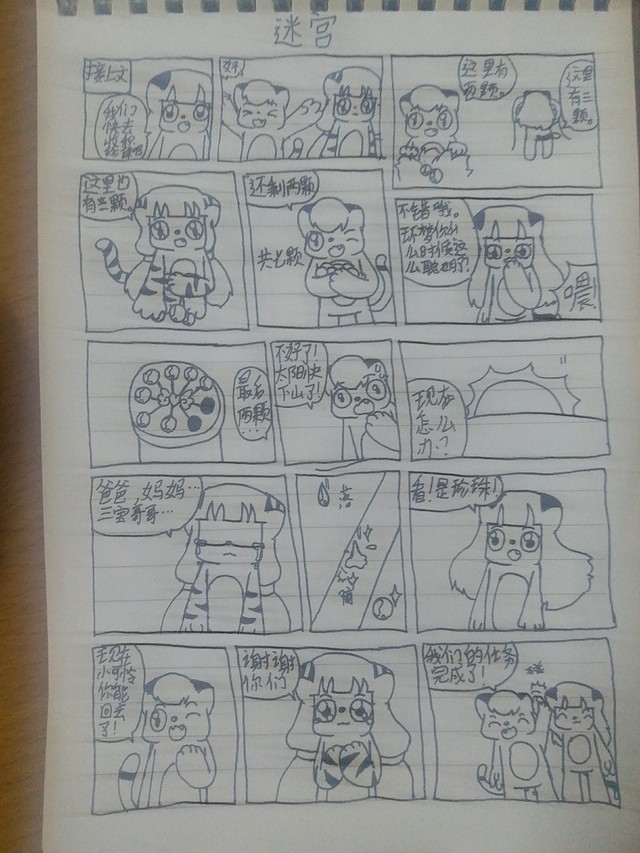 迷宫
接上文
我们
快去
好
这里有
两颗。
这里
有三
颗。
这里也
有三颗。
还剩两颗
共七颗
不错哦。
环梦你什
么时候这
么聪明了?
喂!
最后
两颗
…
不好了!
太阳快
下山了!
现在
怎么
办?
爸爸,妈妈…
三宝哥哥…
落
看!是珍珠!
现在
小可怜
你能
回去
了!
谢谢
你们
我们的任务
完成了!